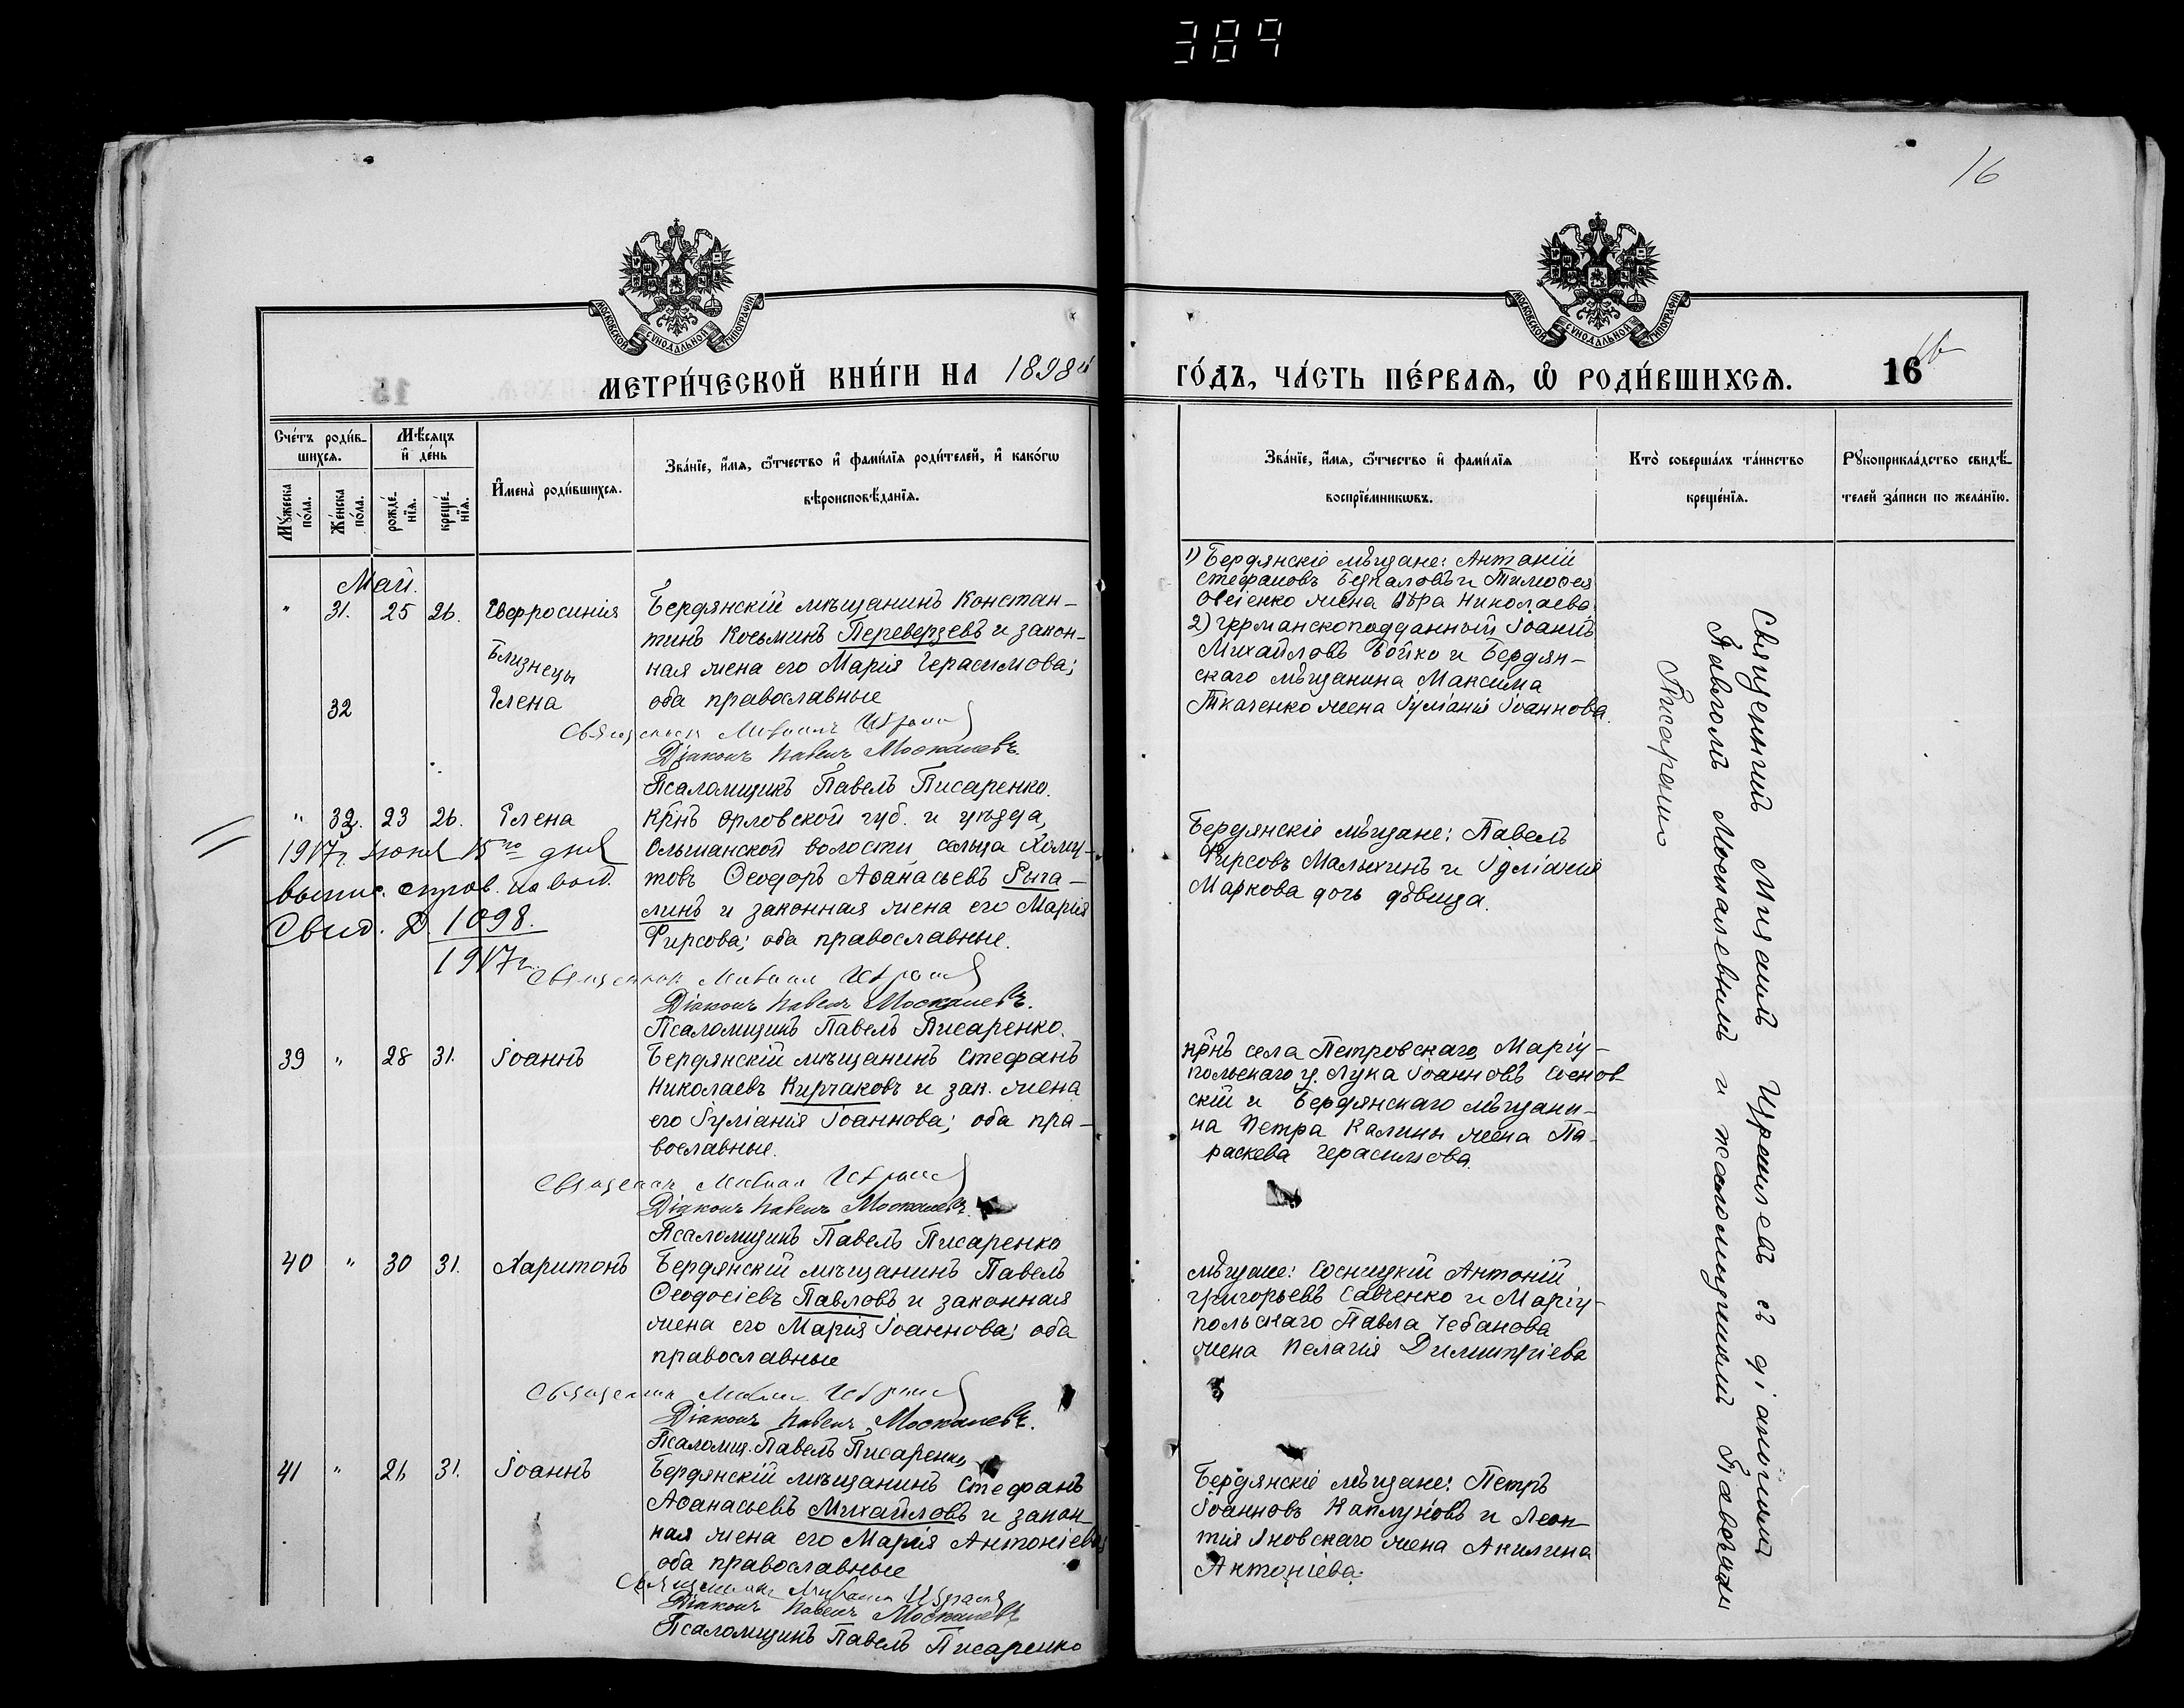 389
16
МОСКОВСКОЙ СѴНОДАЛЬНОЙ ТИПОГРАФІИ
МОСКОВСКОЙ СѴНОДАЛЬНОЙ ТИПОГРАФІИ
МЕТРИ́ЧЕСКОЙ КНИ́ГИ НА 1898й
ГО́ДЪ, ЧА́СТЬ ПЕ́РВАѦ, Ѽ РОДИ́ВШИХСѦ. 16
Сче́тъ роди́в-
шихсѧ.
Мѣ́сѧцъ
и҆ де́нь
Мꙋ́жеска по́ла.
Же́нска по́ла.
рожде́нїѧ.
креще́нїѧ.
И҆мена̀ роди́вшихсѧ.
Зва́нїе, и҆́мѧ, ѻ҆́тчество и҆ фами́лїѧ роди́телей, и҆ како́гѡ
вѣроисповѣ́данїѧ.
Зва́нїе, и҆́мѧ, ѻ҆́тчество и҆ фами́лїѧ
воспрїе́мникѡвъ.
Кто̀ соверша́лъ та́инство
креще́нїѧ.
Рꙋкоприкла́дство свидѣ́-
телей за́писи по жела́нїю.
Май.
" 31. 25 26. Евфросинія
Близнецы
32 Елена
Бердянскій мѣщанинъ Констан-
тинъ Косьминъ Переверзевъ и закон-
ная жена его Марія Герасимова;
оба православные
Священникъ Михаилъ
Діаконъ Павелъ Москалевъ.
Псаломщикъ Павелъ Писаренко.
1) Бердянскіе мѣщане: Антоній
Стефановъ и Тимоѳея
Овсіенко жена Вѣра Николаева
2) германскоподданный Іоаннъ
Михайловъ Бойко и Бердян-
скаго мѣщанина Максима
Ткаченко жена Іуліанія Іоаннова.
" 33. 23 26. Елена
1917г. Іюня 15го дня
выпис. справ. по воен.
Свид. № 1098.
1917г.
крнъ Орловской губ. и уѣзда,
Ольшанской волости сельца Хому-
товъ Ѳеодоръ Аѳанасьевъ Рыга-
линъ и законная жена его Марія
Фирсова; оба православные.
Священникъ Михаилъ
Діаконъ Павелъ Москалевъ.
Псаломщикъ Павелъ Писаренко.
Бердянскіе мѣщане: Павелъ
Фирсовъ Малыхинъ и Іуліанія
Маркова дочь дѣвица.
39 " 28 31. Іоаннъ
Бердянскій мѣщанинъ Стефанъ
Николаевъ Кирчаковъ и зак. жена
его Іуліанія Іоаннова; оба пра-
вославные.
Священникъ Михаилъ
Діаконъ Павелъ Москалевъ.
Псаломщикъ Павелъ Писаренко
крнъ села Петровскаго, Маріу-
польскаго у. Лука Іоанновъ Соснов-
скій и Бердянскаго мѣщани-
на Петра Калины жена Па-
раскева Герасимова.
40 " 30 31. Харитонъ
Бердянскій мѣщанинъ Павелъ
Ѳеодосіевъ Павловъ и законная
жена его Марія Іоаннова; оба
православные
Священникъ Михаилъ
Діаконъ Павелъ Москалевъ.
Псаломщ. Павелъ Писаренко
мѣщане: Сосницкій Антоній
Григорьевъ Савченко и Маріу-
польскаго Павла Чебанова
жена Пелагія Димитріева
41 " 26 31. Іоаннъ
Бердянскій мѣщанинъ Стефанъ
Аѳанасьевъ Михайловъ и закон-
ная жена его Марія Антоніева;
оба православные
Священникъ Михаилъ
Діаконъ Павелъ Москалевъ
Псаломщикъ Павелъ Писаренко
Бердянскіе мѣщане: Петръ
Іоанновъ Каплуновъ и Леон-
тія Яновскаго жена Акилина
Антоніева.
Священникъ Михаилъ съ діакономъ
Павломъ Москалевымъ и псаломщикомъ Павломъ
Писаренко